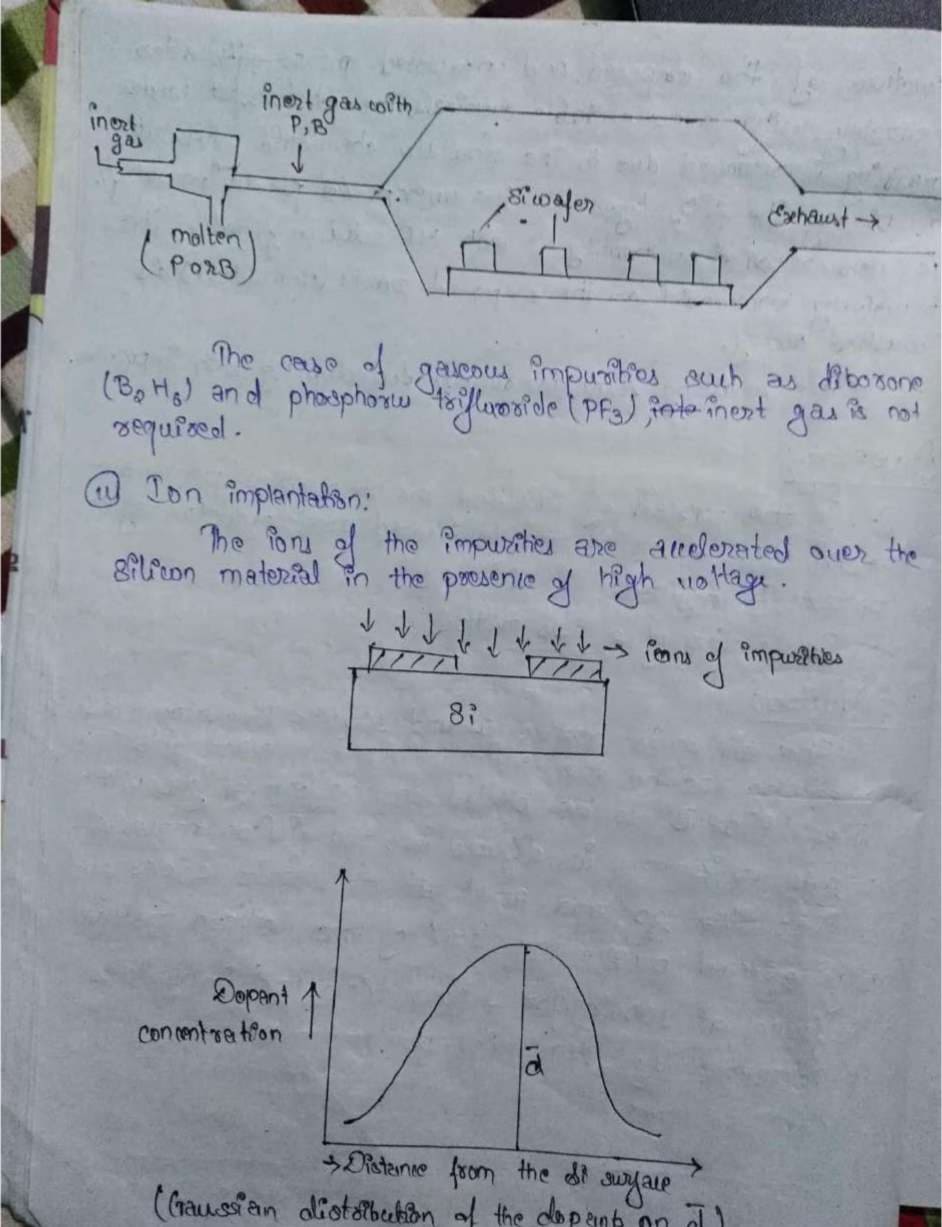 inert gas with
inert
P, B
gas
Si wafer
Exhaust →
molten
P or B
The case of gaseous impurities such as diborone
(B₂H₆) and phosphorus trifluoride (PF₃), inert gas is not
required.
(ii) Ion implantation:
The ions of the impurities are accelerated over the
Silicon material in the presence of high voltage.
→ ions of impurities
Si
Dopant ↑
concentration
d̄
→ Distance from the Si surface
(Gaussian distribution of the dopants on d̄)